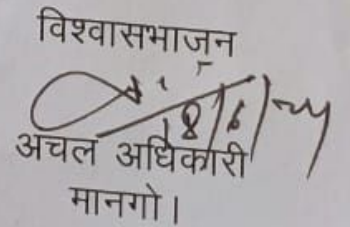 विश्वासभाजन
18/6/24
अचल अधिकारी
मानगो।